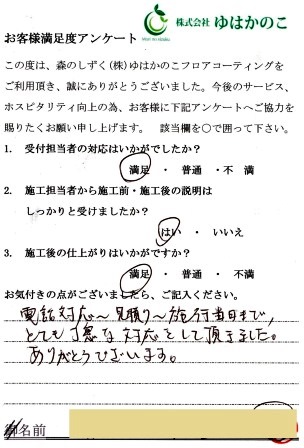 株式会社 ゆはかのこ
お客様満足度アンケート
この度は、森のしずく(株)ゆはかのこフロアコーティングを
ご利用頂き、誠にありがとうございました。今後のサービス、
ホスピタリティ向上の為、お客様に下記アンケートへご協力を
賜りたくお願い申し上げます。 該当欄を○で囲って下さい。
1. 受付担当者の対応はいかがでしたか?
満足 ・ 普通 ・不 満
2. 施工担当者から施工前・施工後の説明は
しっかりと受けましたか?
はい ・ いいえ
3. 施工後の仕上がりはいかがですか?
満足 ・ 普通 ・ 不満
お気付きの点がございましたら、ご記入ください。
電話対応~見積り~施行当日まで、
とても丁寧な対応をして頂きました。
ありがとうございます。
御名前